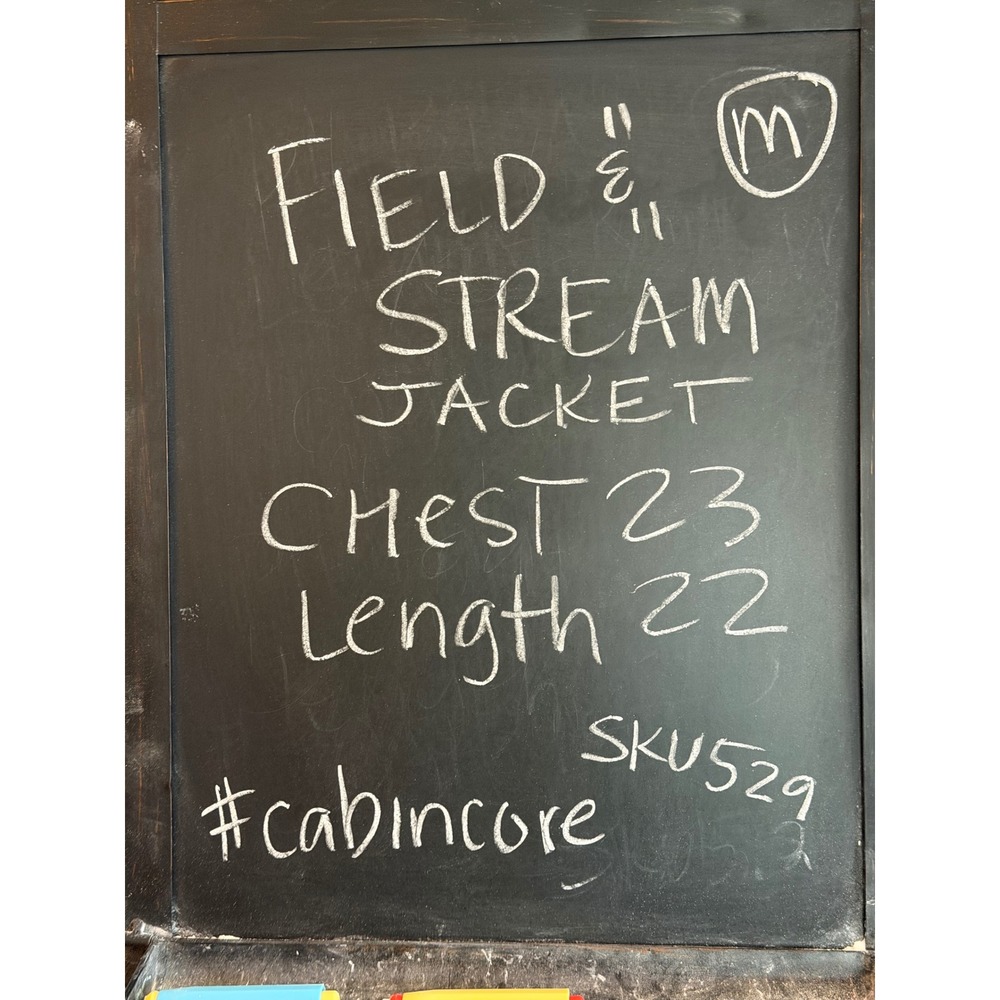 FIELD & M
STREAM
JACKET
CHEST 23
Length 22
SKU529
#cabincore